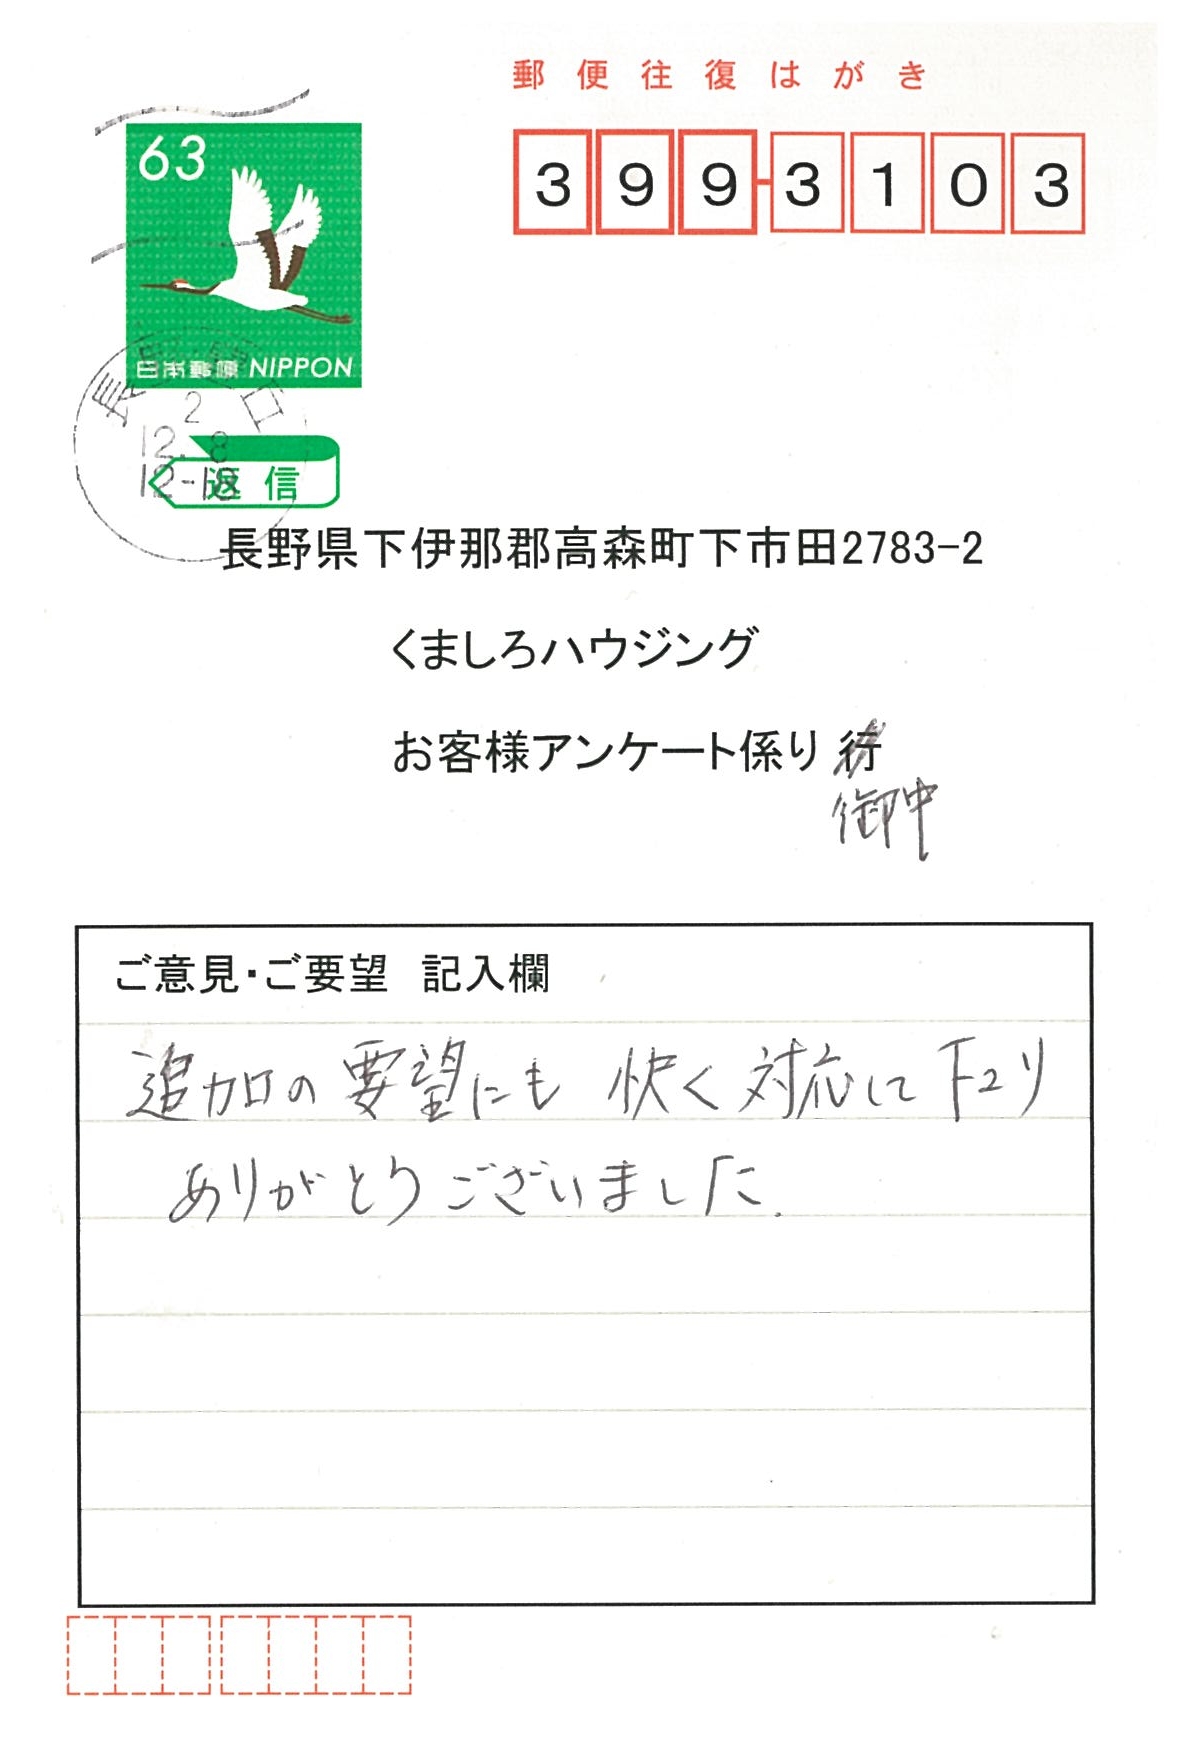 郵便往復はがき
63
399-3103
日本郵便 NIPPON
2
12.8
12-18
返信
長野県下伊那郡高森町下市田2783-2
くましろハウジング
お客様アンケート係り 行
御中
ご意見・ご要望 記入欄
追加の要望にも 快く対応して下さり
ありがとうございました.